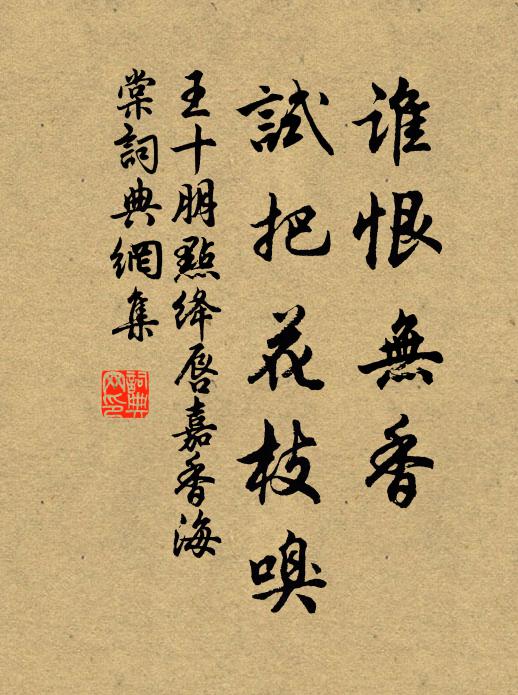 誰恨無香
試把花枝嗅
王十朋點絳唇嘉香海
棠詞典網集
詞典
网印